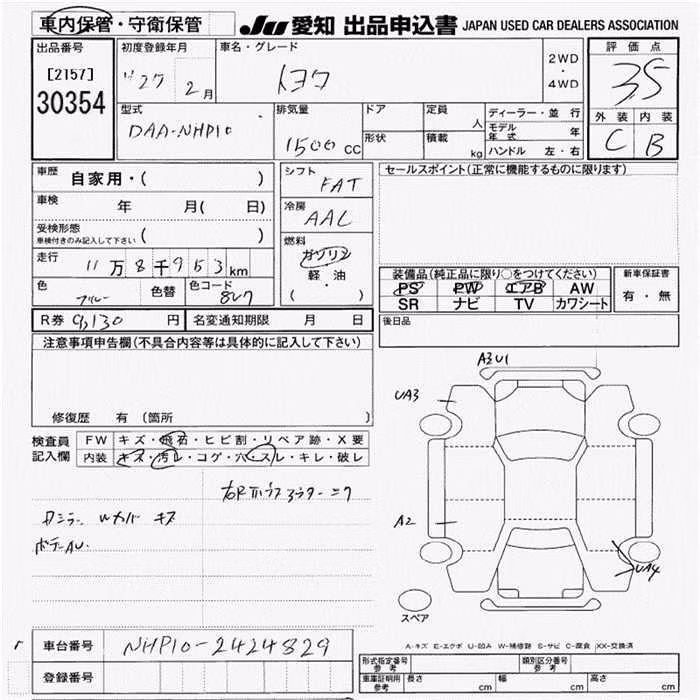 車内保管・守衛保管
JU 愛知 出品申込書 JAPAN USED CAR DEALERS ASSOCIATION
出品番号
[2157]
30354
初度登録年月
H27 2月
車名・グレード
トヨタ
2WD
・
4WD
評価点
3.5
外装 内装
C B
型式
DAA-NHP10
排気量
1500 CC
ドア
形状
定員 人
積載 kg
ディーラー・並 行
モデル年式 年
ハンドル 左・右
車歴 自家用・( )
車検 年 月( 日)
受検形態
車検付きのみ記入して下さい ( )
走行 11万8千953km
色 ブルー 色替 色コード 8W7
シフト FAT
冷房 AAC
燃料
ガソリン
軽・油
( ・ )
セールスポイント(正常に機能するものに限ります)
装備品(純正品に限り○をつけてください)
PS PW エアB AW
SR ナビ TV カワシート
新車保証書
有・無
R券 9,130 円 名変通知期限 月 日
後日品
注意事項申告欄(不具合内容等は具体的に記入して下さい)
修復歴 有 (箇所 )
検査員記入欄
FW キズ・飛石・ヒビ割・リペア跡・X要
内装 キズ・汚レ・コゲ・穴・スレ・キレ・破レ
Wカバー キズ
ボデーAU.
A3U1
UA3
A2
UA4
スペア
A-キズ E-エクボ U-凹A W-補修跡 S-サビ C-腐食 XX-交換済
車台番号 NHP10-2424829
登録番号
形式指定番号 参考
類別区分番号 参考
車庫証明用 参考 長さ cm 幅 cm 高さ cm